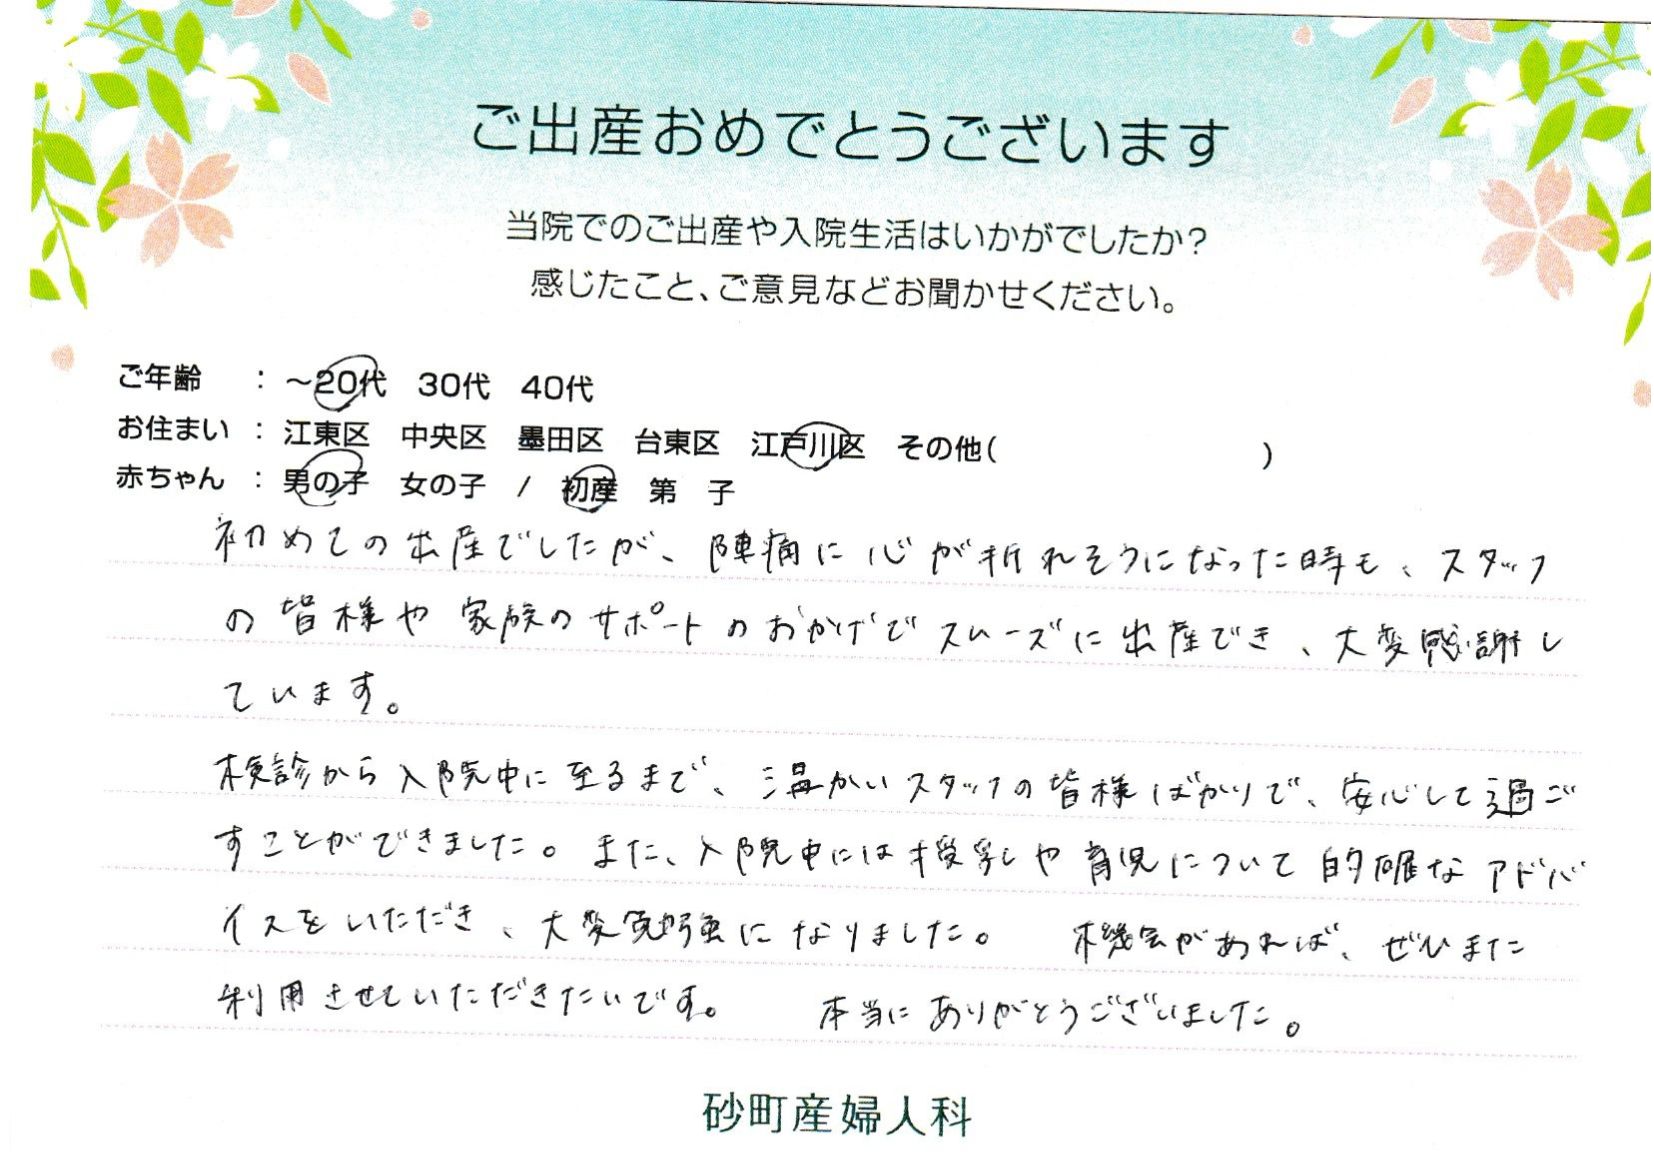 ご出産おめでとうございます
当院でのご出産や入院生活はいかがでしたか？
感じたこと、ご意見などお聞かせください。
ご年齢 ： ～20代 30代 40代
お住まい ： 江東区 中央区 墨田区 台東区 江戸川区 その他( )
赤ちゃん ： 男の子 女の子 / 初産 第 子
初めての出産でしたが、陣痛に心が折れそうになった時も、スタッフ
の皆様や家族のサポートのおかげでスムーズに出産でき、大変感謝し
ています。
検診から入院中に至るまで、温かいスタッフの皆様ばかりで、安心して過ご
すことができました。また、入院中には授乳や育児について的確なアドバ
イスをいただき、大変勉強になりました。 機会があれば、ぜひまた
利用させていただきたいです。 本当にありがとうございました。
砂町産婦人科